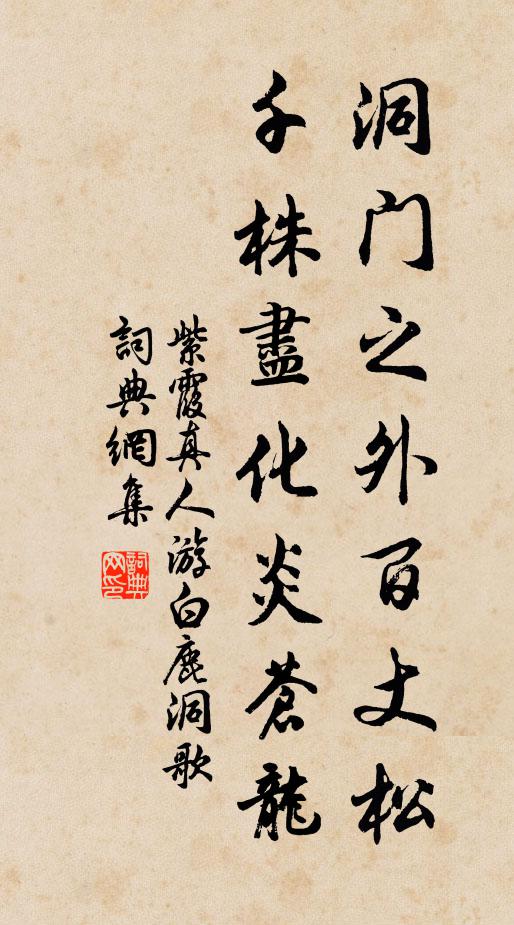 洞門之外百丈松
千株盡化炎蒼龍
紫霞真人游白鹿洞歌
詞典網集
詞典网印